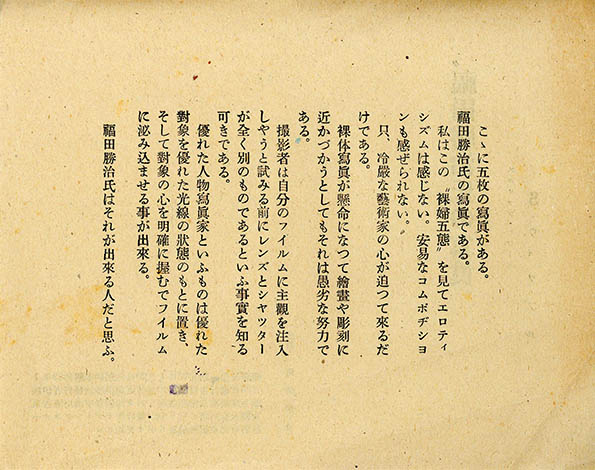 こゝに五枚の寫眞がある。
福田勝治氏の寫眞である。
私はこの〝裸婦五態〟を見てエロティ
シズムは感じない。安易なコムポヂショ
ンも感ぜられない。
只、冷嚴な藝術家の心が迫つて來るだ
けである。
裸体寫眞が懸命になつて繪畫や彫刻に
近かづかうとしてもそれは愚劣な努力で
ある。
撮影者は自分のフイルムに主觀を注入
しやうと試みる前にレンズとシヤツター
が全く別のものであるといふ事實を知る
可きである。
優れた人物寫眞家といふものは優れた
對象を優れた光線の狀態のもとに置き、
そして對象の心を明確に握むでフイルム
に泌み込ませる事が出來る。
福田勝治氏はそれが出來る人だと思ふ。